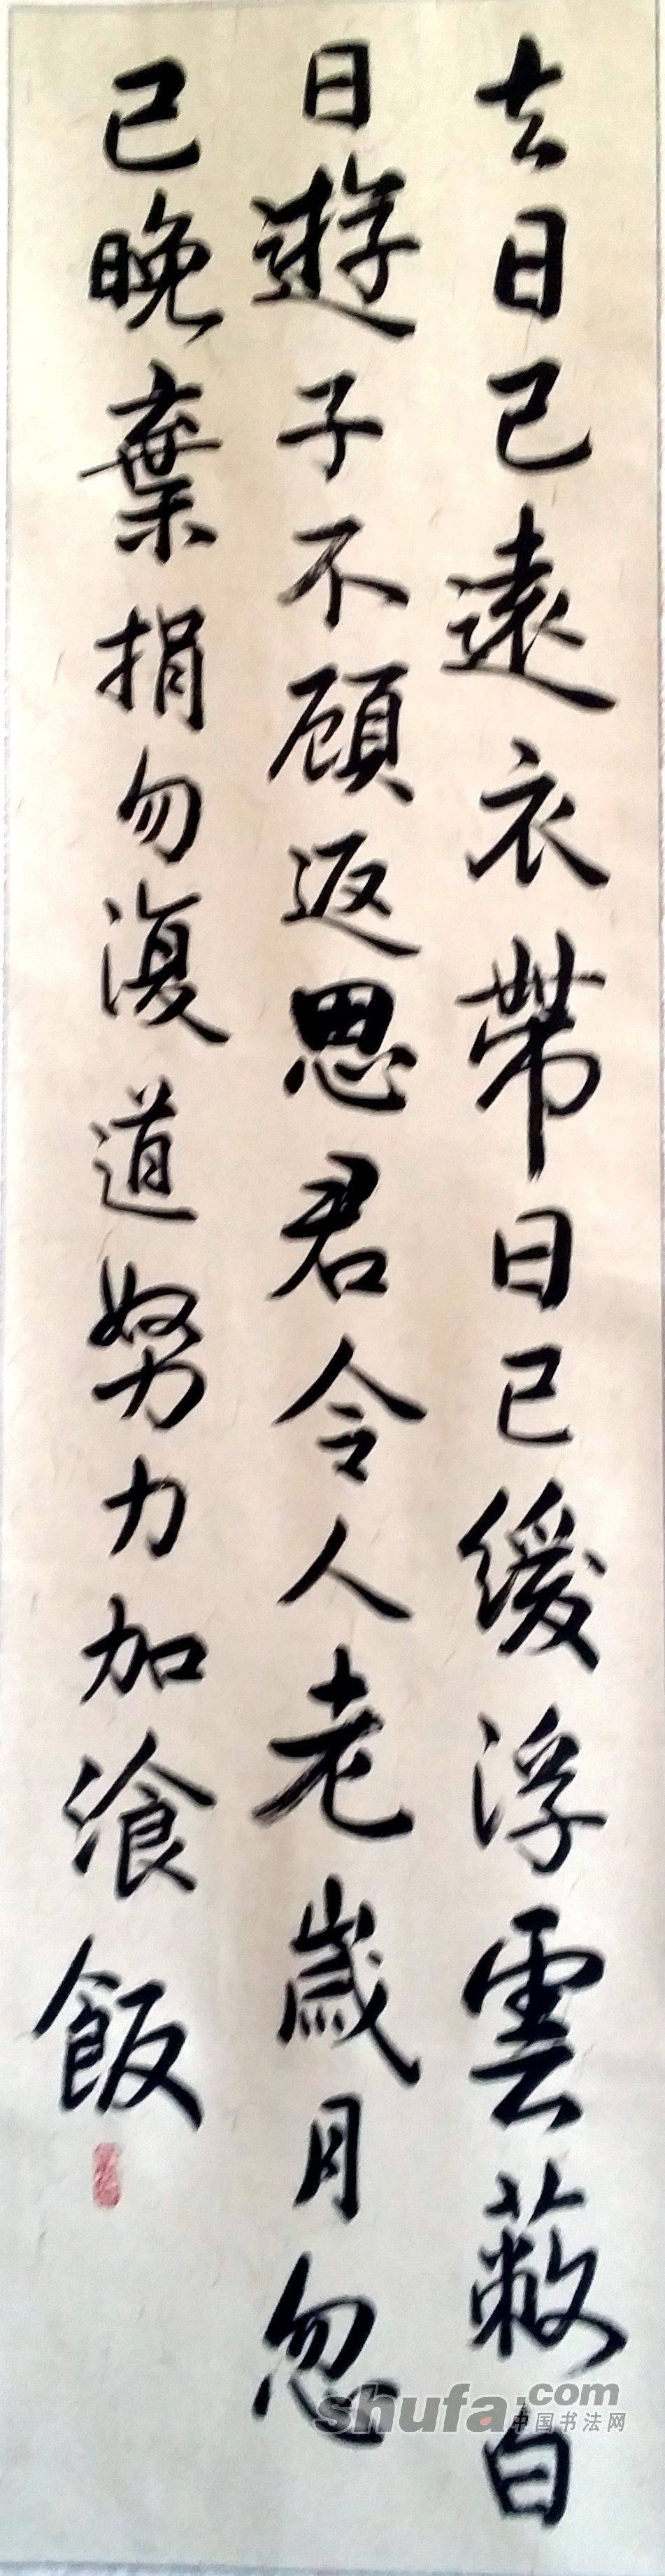 去日已遠衣帶日已緩浮雲蔽白
日遊子不顧返思君令人老歲月忽
已晚棄捐勿復道努力加湌飯
shufa.com
中国书法网